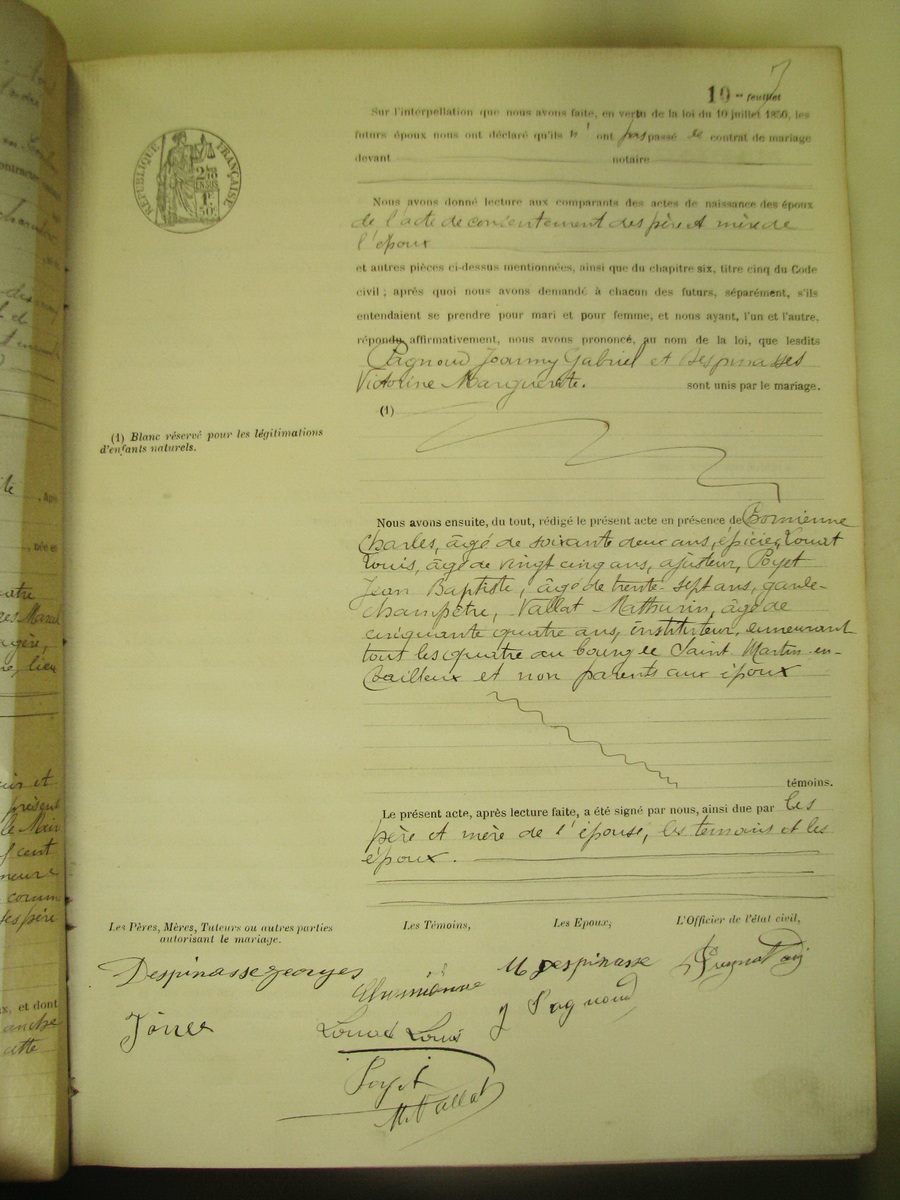 7
19me feuillet
Sur l'interpellation que nous avons faite, en vertu de la loi du 10 juillet 1850, les
futurs époux nous ont déclaré qu'ils n' ont pas passé de contrat de mariage
devant notaire
RÉPUBLIQUE FRANÇAISE
2/10
EN SUS
1F
50C
Nous avons donné lecture aux comparants des actes de naissance des époux
de l'acte de consentement des père et mère de
l'époux
et autres pièces ci-dessus mentionnées, ainsi que du chapitre six, titre cinq du Code
civil ; après quoi nous avons demandé à chacun des futurs, séparément, s'ils
entendaient se prendre pour mari et pour femme, et nous ayant, l'un et l'autre,
répondu affirmativement, nous avons prononcé, au nom de la loi, que lesdits
Pagnoud Joanny Gabriel et Despinasses
Victorine Marguerite. sont unis par le mariage.
(1)
(1) Blanc réservé pour les légitimations
d'enfants naturels.
Nous avons ensuite, du tout, rédigé le présent acte en présence de
Charles, âgé de soixante deux ans, épicier, Louat
Louis, âgé de vingt cinq ans, ajusteur, Poyet
Jean Baptiste, âgé de trente-sept ans, garde-
champêtre, Vallat Mathurin, âgé de
cinquante quatre ans, instituteur, demeurant
tout les quatre au bourg de Saint Martin en-
Coailleux et non parents aux époux
témoins.
Le présent acte, après lecture faite, a été signé par nous, ainsi due par les
père et mère de l'épouse, les temoins et les
époux.
Les Pères, Mères, Tuteurs ou autres parties
autorisant le mariage.
Les Témoins,
Les Epoux,
L'Officier de l'état civil,
Despinasse georges
M Despinasse
J Pagnoud
Louat Louis
Poyet
M. Vallat